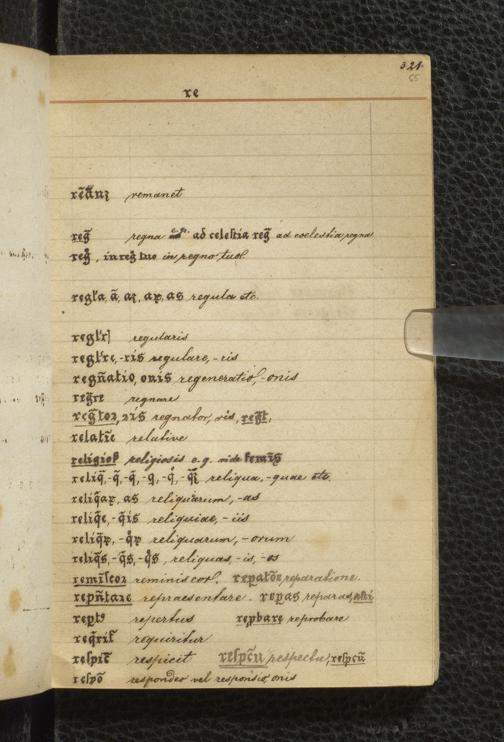 321
65
re
remanet
reg̃ regna ad celestia reg̃ ad coelestia regna
in reg̊ tuo in regno tuo
regl'a, ã, aȝ, aꝝ, as regula etc.
regl'r] regularis
regl're, -ris regulare, -ris
regñatio, onis regeneratio, -onis
reg̃re regnare
reg̃toꝛ, ꝛis regnator, ris, reg̃t,
relatiẽ relative
religioſ religiosis e.g. vide
reliq̃, reliqua, -quae etc.
reliq̃aꝝ, as reliquarum, -as
reliq̃e, -q̃is reliquiae, -iis
reliq̃ꝝ, -q̊ꝝ reliquarum, -orum
reliq̃s, -q̃s, -q̊s, reliquas, -is, -os
remiſcoꝛ reminiscor. reparatione.
repñtare repraesentare. repas reparas,
rept⁹ repertus repbare reprobare
requiritur
reſpic̃ respicit reſpc̃u respectu, reſpc̃u
reſpõ respondeo vel responsio, onis